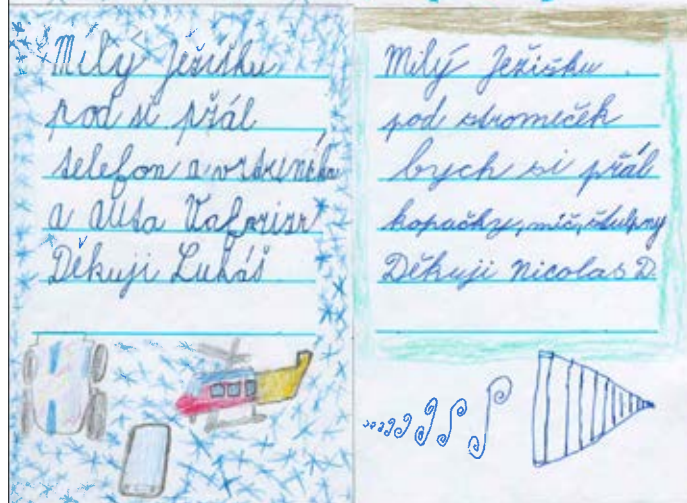 Milý Ježíšku
pod si přál
telefon a
a auta
Děkuji Lukáš
Milý Ježíšku
pod stromeček
bych si přál
kopačky, míč, štulpny
Děkuji Nicolas D.